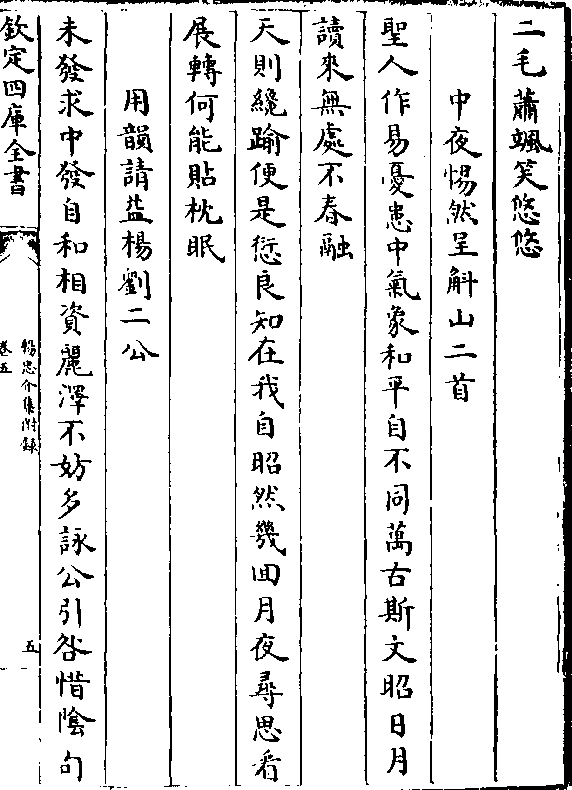 二毛蕭颯笑悠悠
中夜惕然呈斛山二首
聖人作易憂患中氣象和平自不同萬古斯文昭日月
讀來無處不春融
天則纔踰便是愆良知在我自昭然幾回月夜尋思看
展轉何能貼枕眠
用韻請益楊劉二公
未發求中發自和相資麗澤不妨多詠公引咎惜陰句
欽定四庫全書
楊忠介集附錄
卷五
五